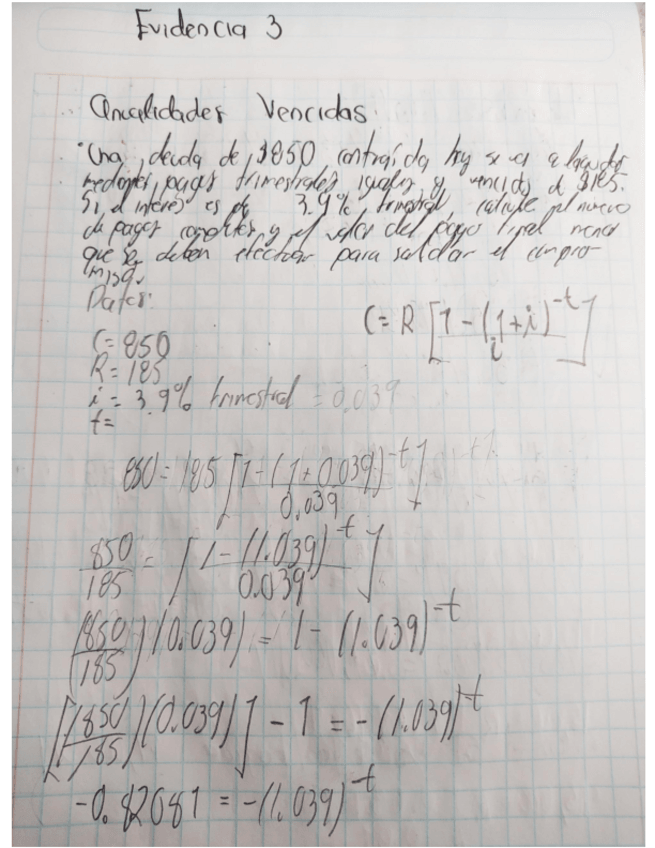 Evidencia 3
Anualidades Vencidas.
Una deuda de $850 contraída hoy se va a liquidar
mediante pagos trimestrales iguales y vencidos de $185.
Si el interés es de 3.9% trimestral, calcule el numero
de pagos completos y el valor del pago final menor
que se deben efectuar para saldar el compro-
miso.
Datos:
C = R [1 - (1+i)^-t / i]
C = 850
R = 185
i = 3.9% trimestral = 0.039
t =
850 = 185 [1 - (1+0.039)^-t / 0.039]
850/185 = [1 - (1.039)^-t / 0.039]
(850/185)(0.039) = 1 - (1.039)^-t
[(850/185)(0.039)] - 1 = -(1.039)^-t
-0.82081 = -(1.039)^-t